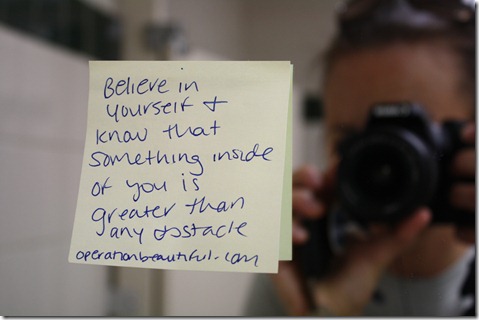 Believe in
yourself +
know that
something inside
of you is
greater than
any obstacle
operationbeautiful.com